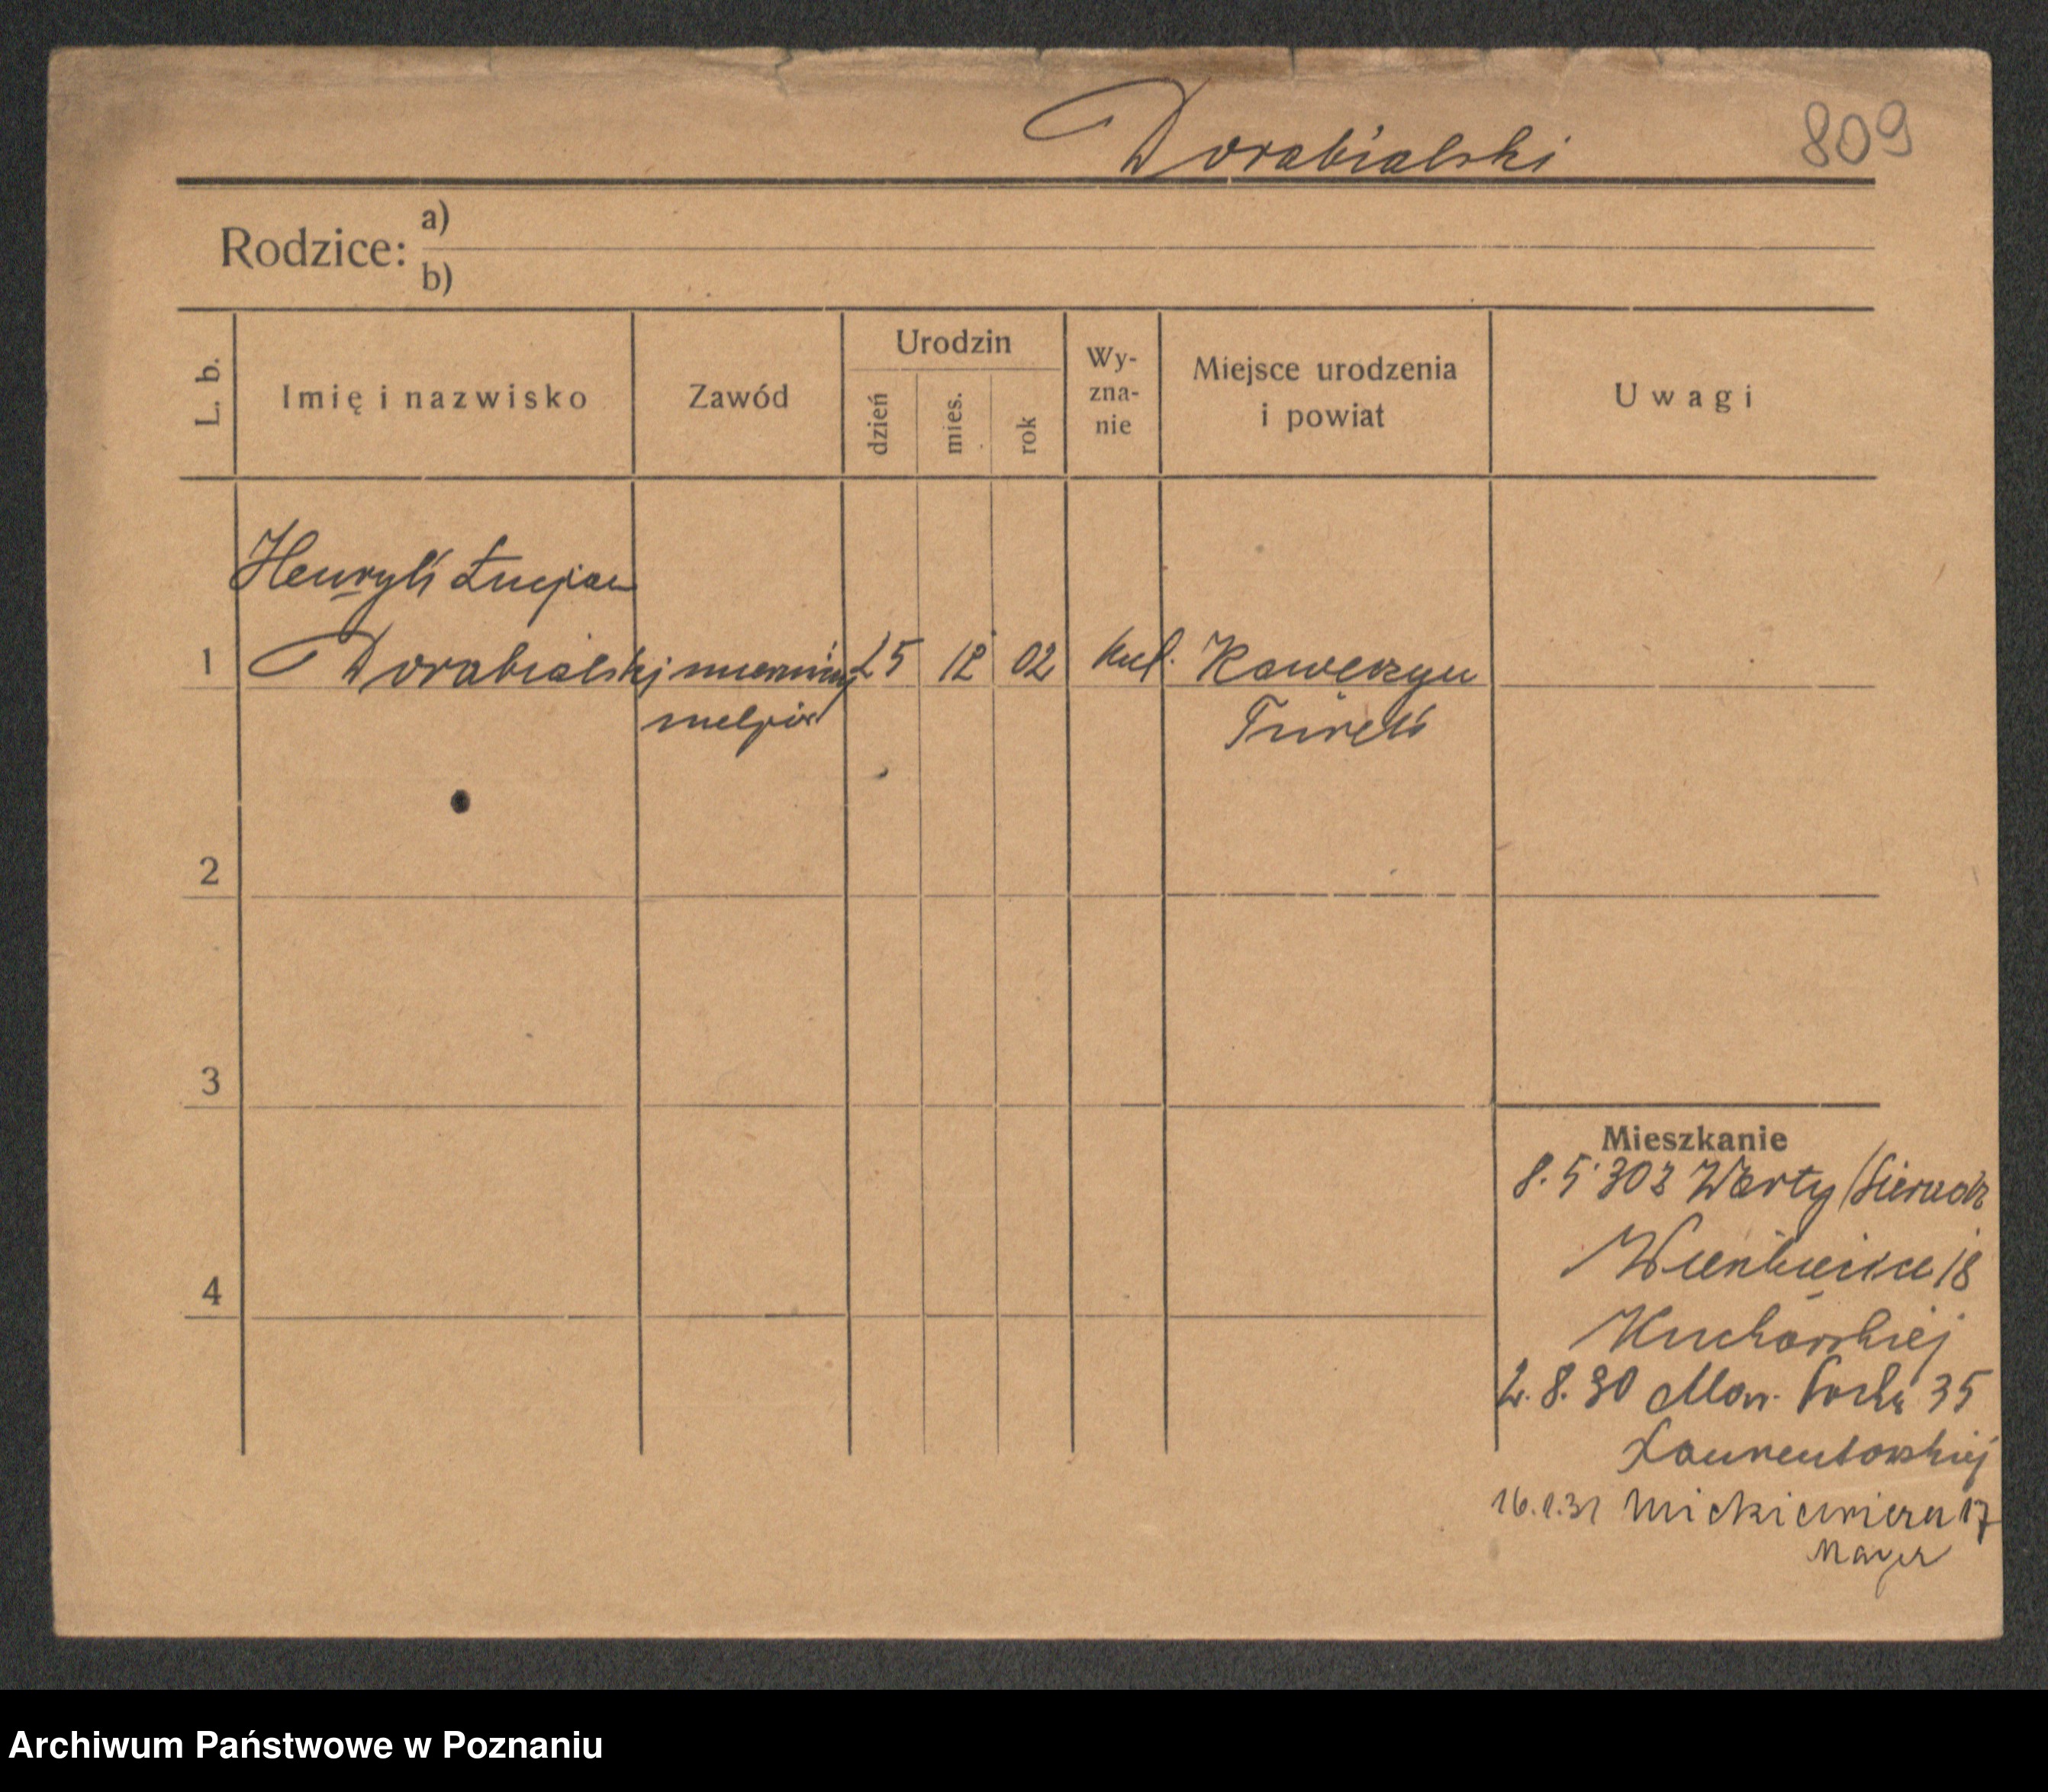 Dorabialski
809
Rodzice:
a)
b)
L. b.
Imię i nazwisko
Zawód
Urodzin
dzień
mies.
rok
Wy-
zna-
nie
Miejsce urodzenia
i powiat
Uwagi
Henryk Łucjan
1 Dorabialski 25 12 02 Kat. Kawęczyn
Turek
2
3
4
Mieszkanie
8.5.30 z Warty / Sieradz
18
Kucharskiej
2.8.30 Mar. Focha 35
Laurentowskiej
16.1.31 Mickiewicza 17
Mayer
Archiwum Państwowe w Poznaniu